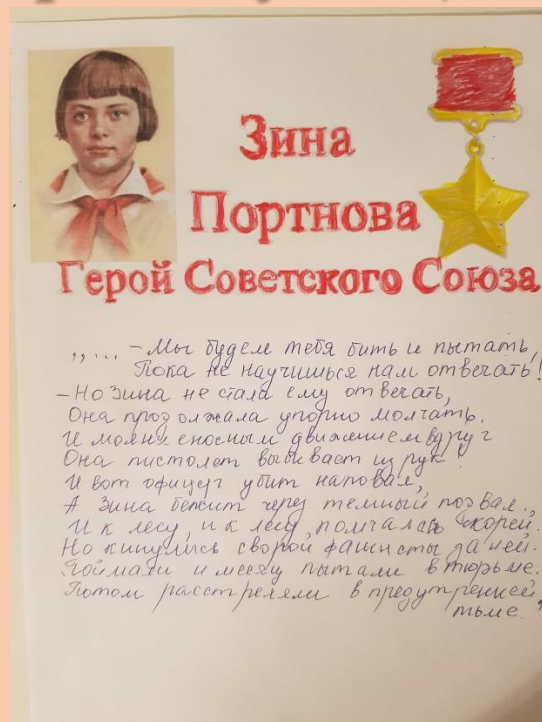 Зина
Портнова
Герой Советского Союза
,,... – Мы будем тебя бить и пытать,
Пока не научишься нам отвечать!
– Но Зина не стала ему отвечать,
Она продолжала упорно молчать.
И молниеносным движением вдруг
Она пистолет выбивает из рук!
И вот офицер убит наповал,
А Зина бежит через темный подвал..
И к лесу, и к лесу помчалась скорей.
Но кинулись сворой фашисты за ней.
Поймали и месяц пытали в тюрьме.
Потом расстреляли в предутренней
тьме."